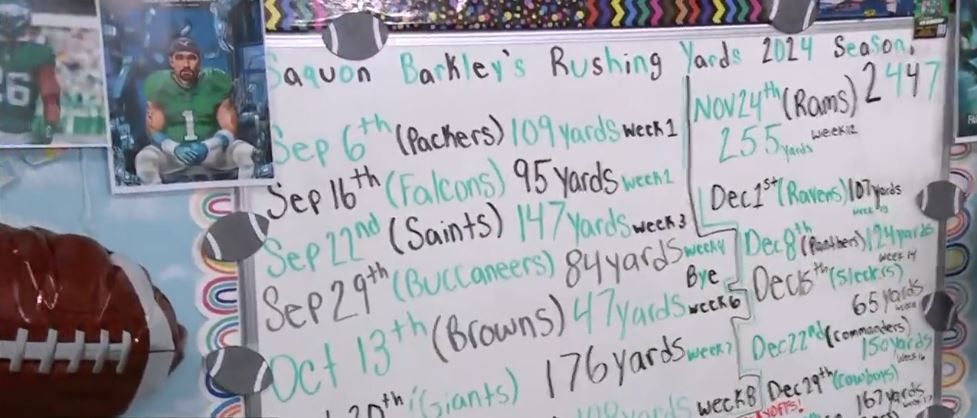 Saquon Barkley's Rushing Yards 2024 Season.
2447
Sep 6th (Packers) 109 yards week 1
Sep 16th (Falcons) 95 yards week 2
Sep 22nd (Saints) 147 yards week 3
Sep 29th (Buccaneers) 84 yards week 4
Bye
Oct 13th (Browns) 47 yards week 6
20th (Giants) 176 yards week 7
yards week 8
Nov 24th (Rams)
255 yards week 12
Dec 1st (Ravens) 107 yards
week 13
Dec 8th (Panthers) 124 yards
week 14
Dec 15th (Sleelers)
65 yards
Dec 22nd (commanders)
150 yards
week 16
Dec 29th (cowboys)
167 yards
26
1